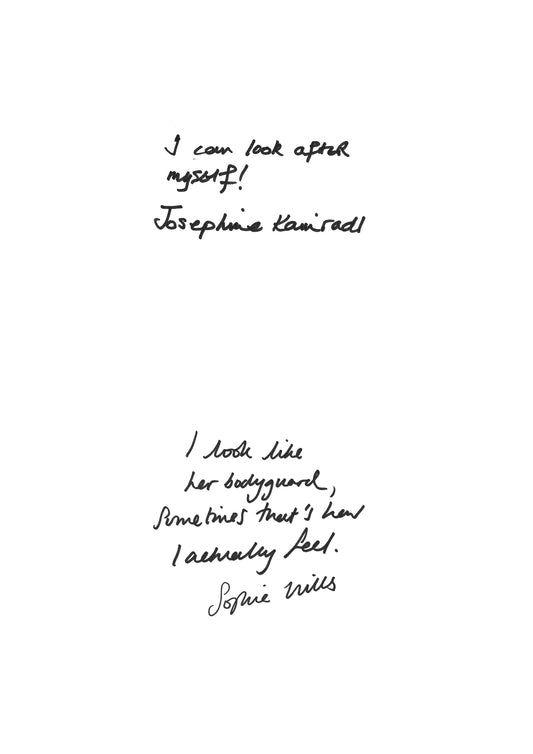 I can look after
myself!
Josephine
I look like
her bodyguard,
Sometimes that's how
I actually feel.
Sophie Mills